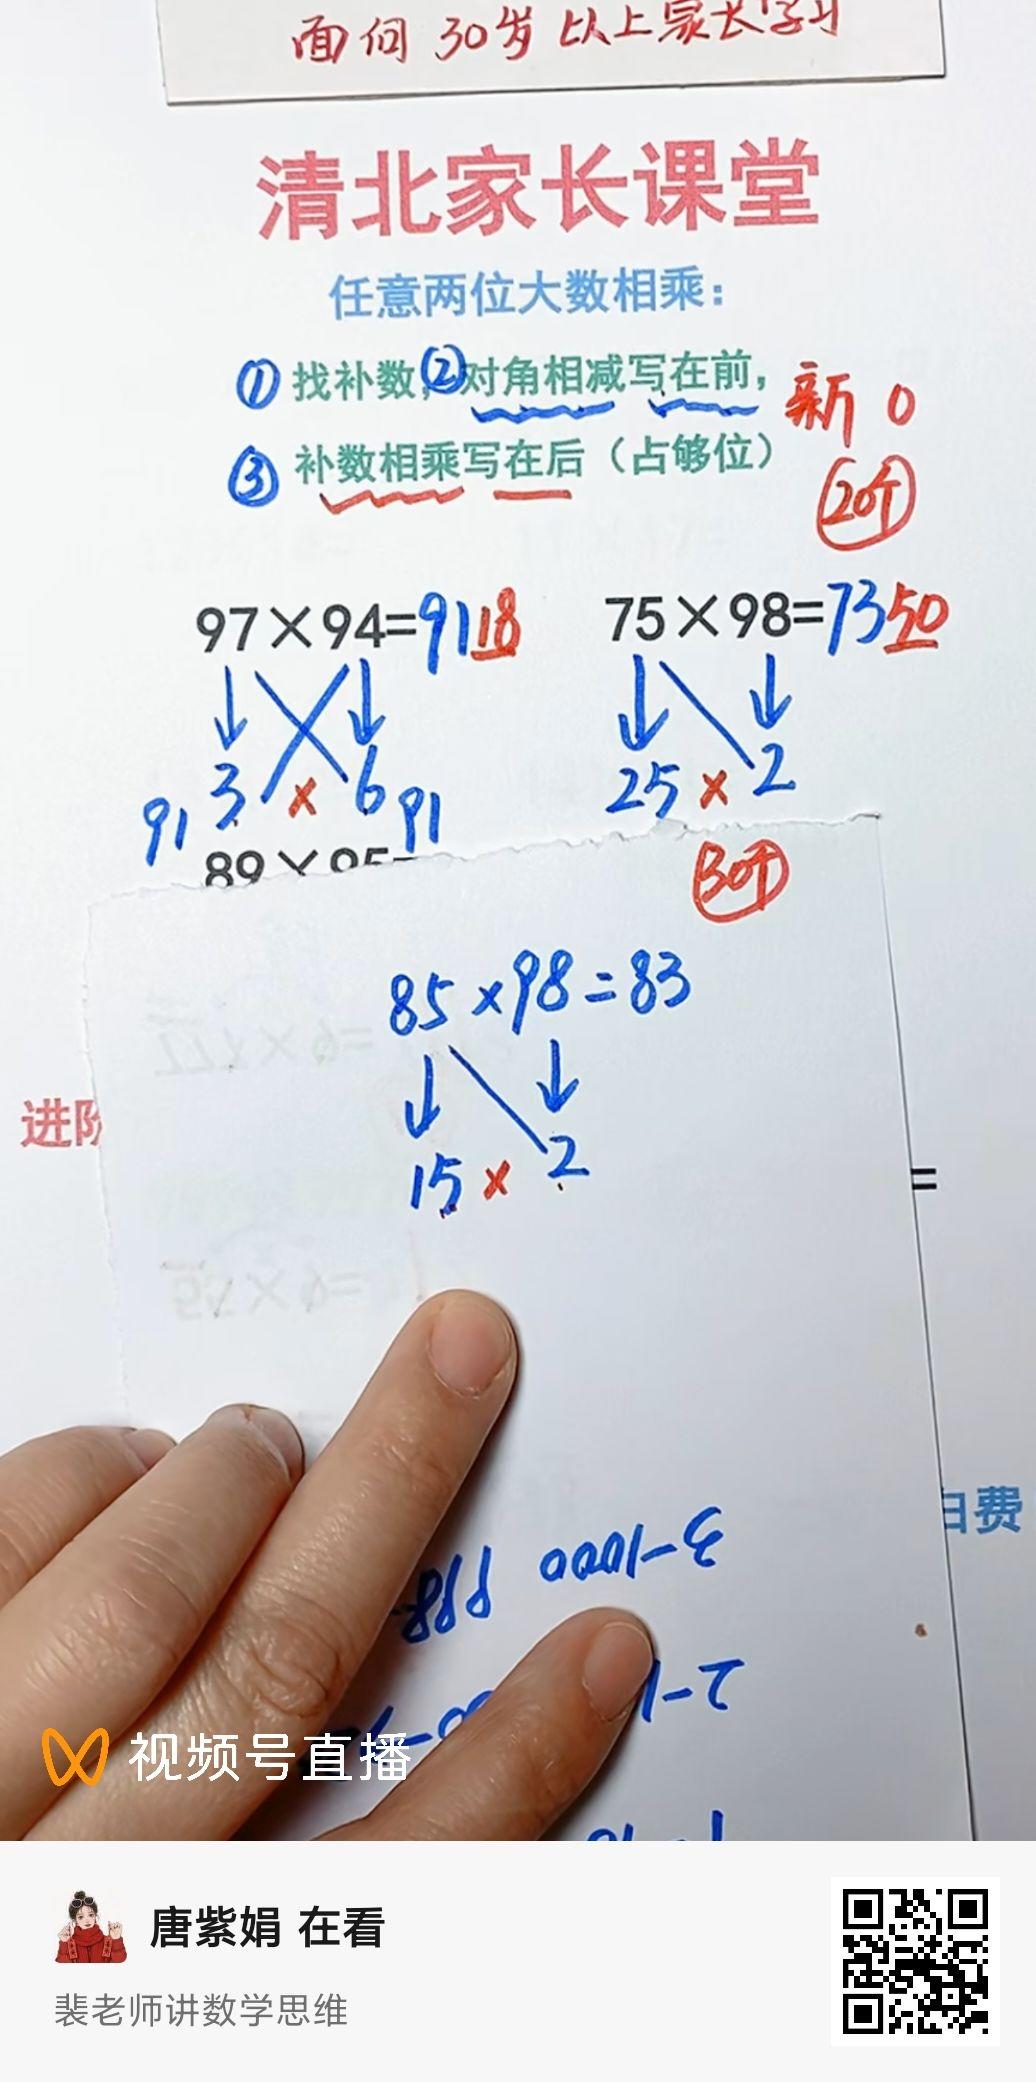 面向 30岁 以上家长学习
清北家长课堂
任意两位大数相乘：
① 找补数，②对角相减写在前，
新 0
③ 补数相乘写在后（占够位）
20个
97×94=9118
75×98=7350
3 × 6
91
91
25 × 2
89×95=
30个
85×98=83
15 × 2
进阶
=
3-1000
998
白费
视频号直播
唐紫娟 在看
裴老师讲数学思维